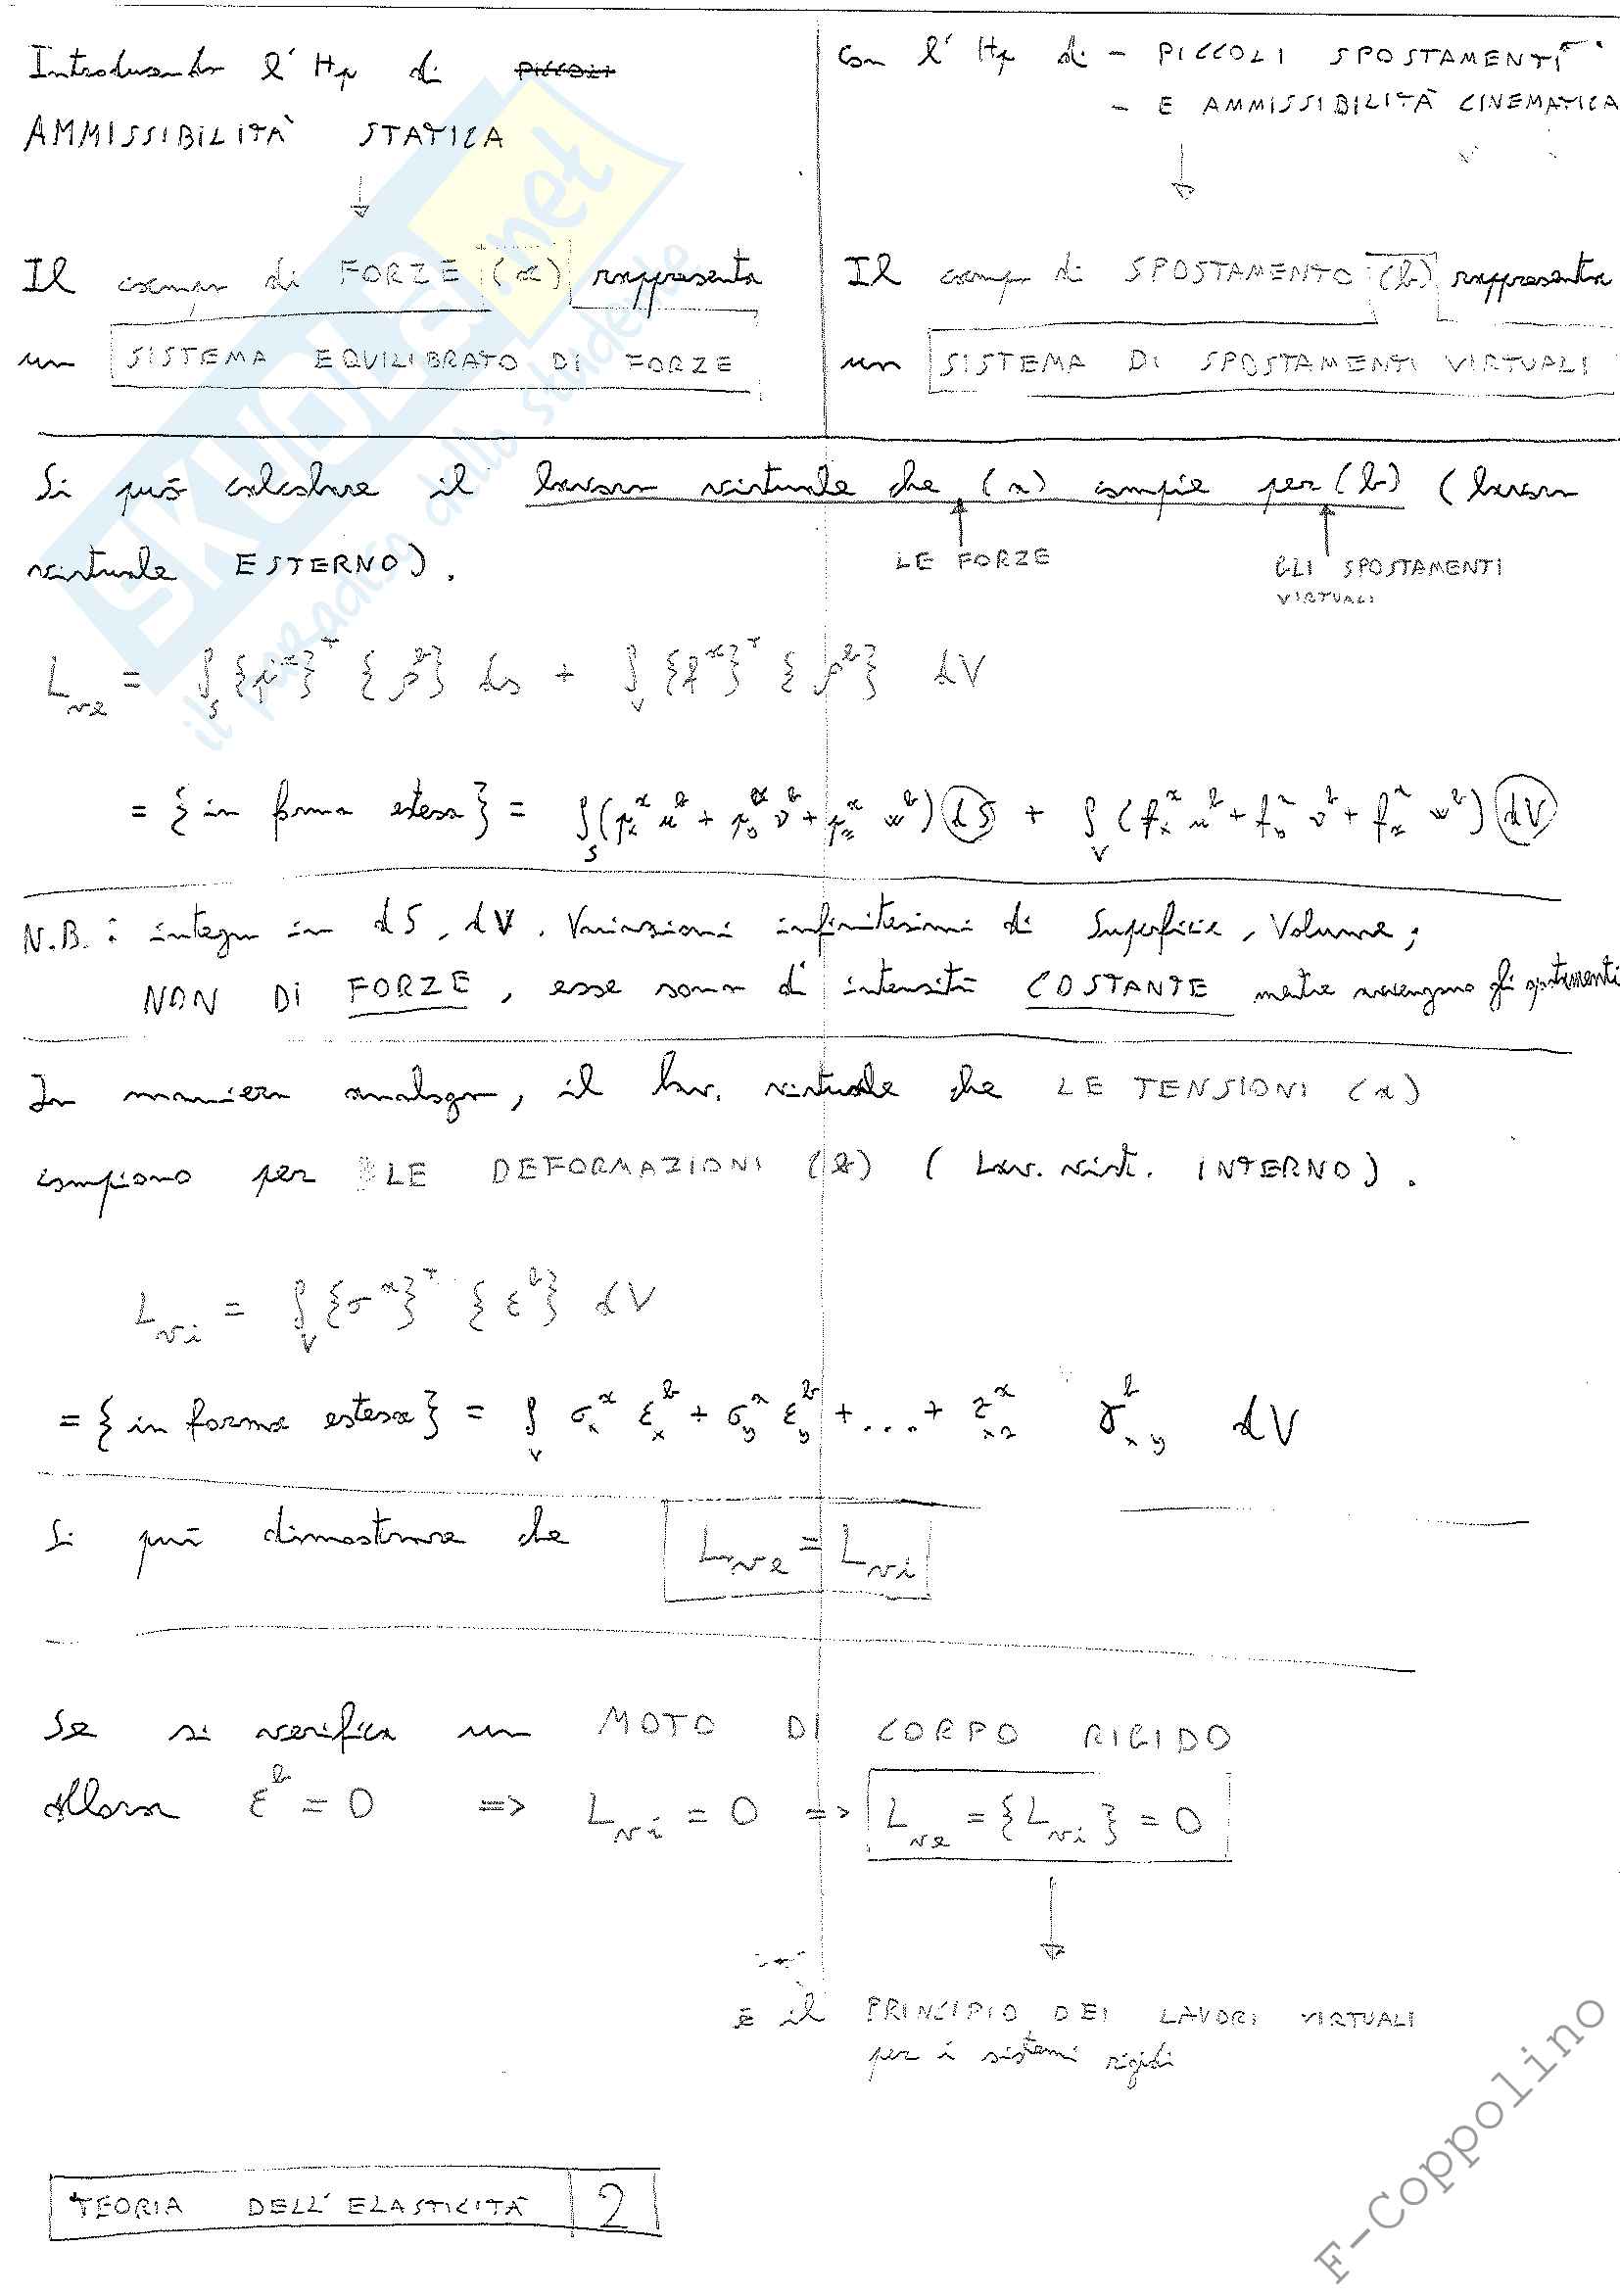 Introducendo l'Hp di PICCOLI
AMMISSIBILITÀ STATICA
Il campo di FORZE (a) rappresenta
un SISTEMA EQUILIBRATO DI FORZE
Con l'Hp di - PICCOLI SPOSTAMENTI
- E AMMISSIBILITÀ CINEMATICA
Il campo di SPOSTAMENTO (b) rappresenta
un SISTEMA DI SPOSTAMENTI VIRTUALI
Si può calcolare il lavoro virtuale che (a) compie per (b) (lavoro
LE FORZE
GLI SPOSTAMENTI
VIRTUALI
virtuale ESTERNO).
L_ve = ∫_S {p^a}^T {s^b} ds + ∫_V {f^a}^T {s^b} dV
= {in forma estesa} = ∫_S (p_x^a u^b + p_y^a v^b + p_z^a w^b) dS + ∫_V (f_x^a u^b + f_y^a v^b + f_z^a w^b) dV
N.B.: integro in dS, dV. Variazioni infinitesime di Superficie, Volume;
NON DI FORZE, esse sono di intensità COSTANTE mentre avvengono gli spostamenti
In maniera analoga, il lav. virtuale che LE TENSIONI (a)
compiono per LE DEFORMAZIONI (b) (Lav. virt. INTERNO).
L_vi = ∫_V {σ^a}^T {ε^b} dV
= {in forma estesa} = ∫_V σ_x^a ε_x^b + σ_y^a ε_y^b + .... + τ_xz^a γ_xy^b dV
Si può dimostrare che L_ve = L_vi
Se si verifica un MOTO DI CORPO RIGIDO
allora ε^b = 0 => L_vi = 0 => L_ve = {L_vi} = 0
è il PRINCIPIO DEI LAVORI VIRTUALI
per i sistemi rigidi
TEORIA DELL'ELASTICITÀ 2
SKUOLA.net
il paradiso dello studente
F-Coppolino